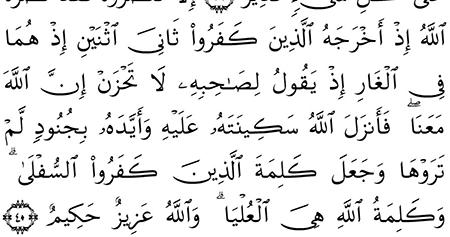 اللَّهُ إِذْ أَخْرَجَهُ الَّذِينَ كَفَرُوا۟ ثَانِىَ اثْنَيْنِ إِذْ هُمَا
فِى الْغَارِ إِذْ يَقُولُ لِصَـٰحِبِهِۦ لَا تَحْزَنْ إِنَّ اللَّهَ
مَعَنَا ۖ فَأَنزَلَ اللَّهُ سَكِينَتَهُۥ عَلَيْهِ وَأَيَّدَهُۥ بِجُنُودٍ لَّمْ
تَرَوْهَا وَجَعَلَ كَلِمَةَ الَّذِينَ كَفَرُوا۟ السُّفْلَىٰ ۗ
وَكَلِمَةُ اللَّهِ هِىَ الْعُلْيَا ۗ وَاللَّهُ عَزِيزٌ حَكِيمٌ ٤٠